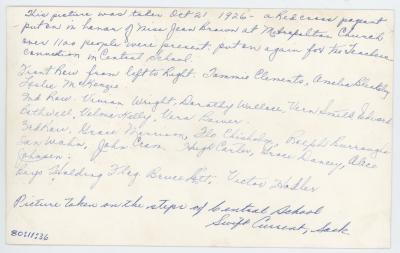 This picture was taken Oct 21, 1926 - a Red cross pageant
put on in honor of Miss Jean Brown at Metropolitan Church
over 1100 people were present. put on again for the Teachers
convention in Central School.
Front Row from left to right. Tammie Clements, Amelia
Leslie McKenzie.
2nd Row. Vivian Wright, Dorothy Wallace, Vern Small, Edward
Bothwell, Velma Kelly, Vera Bower.
3rd Row. Grace Morrison, Flo Chisholm, Ralph Burroughs
Ian Wahn, John Cram. Hugh Carter, Grace Dancey, Alice
Johnson.
Boys Holding Flag Bruce Pitt, Victor Hodler
Picture taken on the steps of Central School
Swift Current, Sask
80S1136